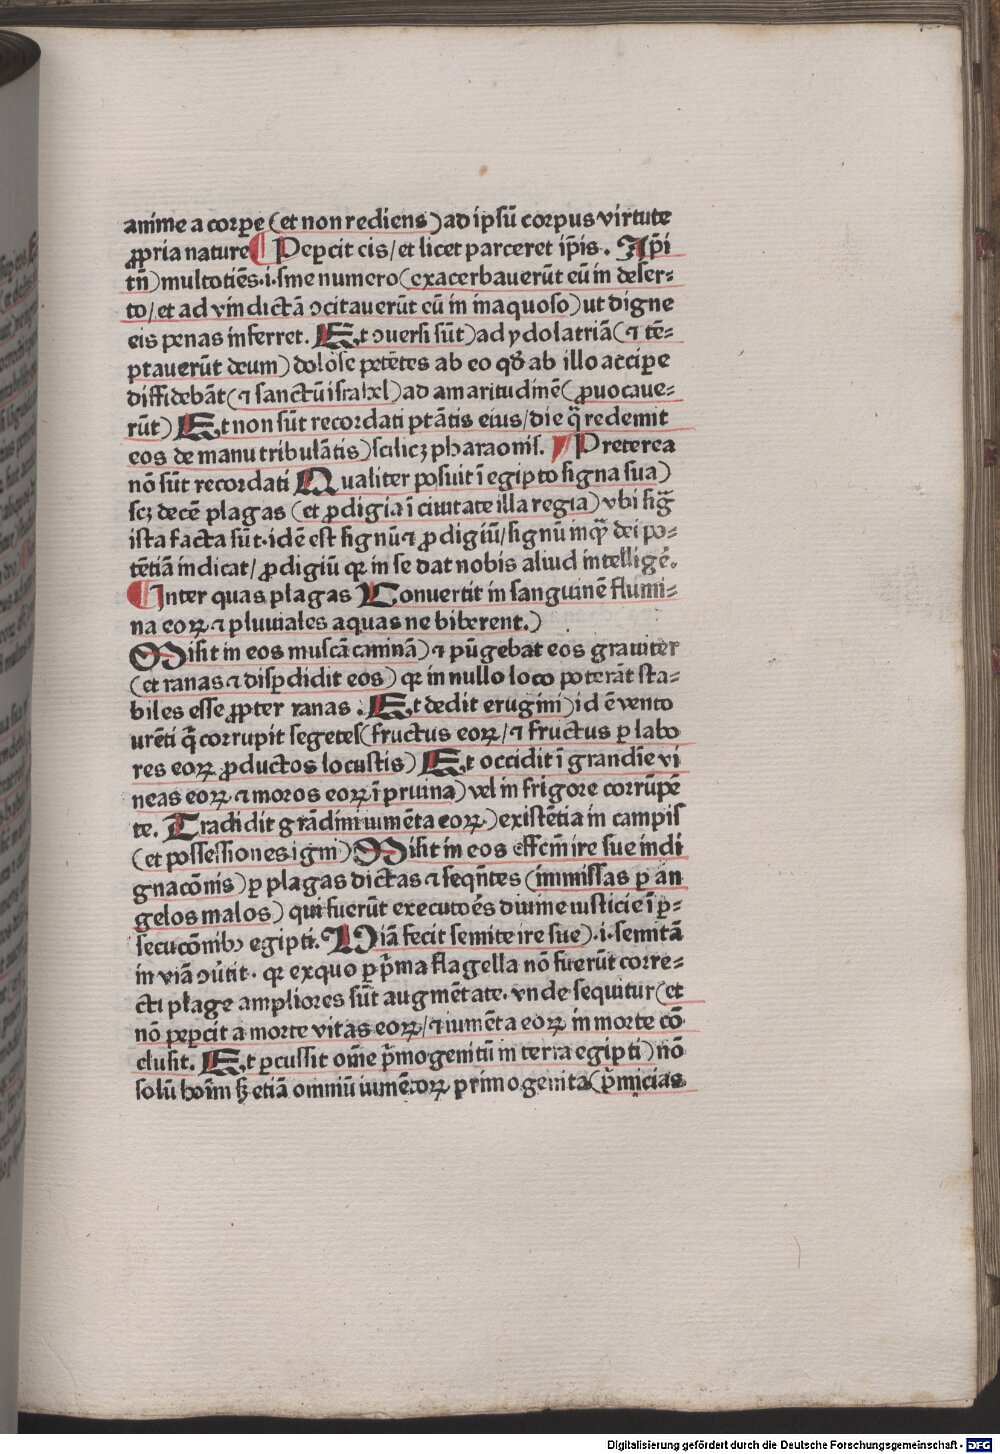 anime a corpe (et non rediens) ad ipsū corpus virtute
ꝓpria nature ¶ Peꝑcit eis/et licet parceret ip̄is. Ip̄i
tn̄) multotiēs.i.sine numero (exacerbauerūt eū in deser⸗
to/et ad vindictā ↄcitauerūt eū in inaquoso) ut digne
eis penas inferret. Et ↄuersi sūt) ad ydolatriā (⁊ tē⸗
ptauerūt deum) dolose petētes ab eo qđ ab illo acciꝑe
diffidebāt (⁊ sanctū israhel) ad amaritudinē (ꝓuocaue⸗
rūt) Et non sūt recordati ptātis eius/die q̄ redemit
eos de manu tribulātis) scilicꝫ pharaonis. ¶ Preterea
nō sūt recordati Qualiter posuit ī egipto signa sua)
scꝫ decē plagas (et ꝓdigia ī ciuitate illa regia) vbi sig̅
ista facta sūt. idē est signū ⁊ ꝓdigiū/signū inqͣ dei po⸗
tētiā indicat/ꝓdigiū qꝛ in se dat nobis aliud intelligē.
¶ Inter quas plagas Conuertit in sanguinē flumi⸗
na eoꝝ ⁊ pluuiales aquas ne biberent.)
Misit in eos muscā caninā) ⁊ pūgebat eos grauiter
(et ranas ⁊ disꝑdidit eos) qꝛ in nullo loco poterāt sta⸗
biles esse ꝓpter ranas. Et dedit erugini) id ē vento
urēti q̄ corrupit segetes (fructus eoꝝ/⁊ fructus ꝑ labo
res eoꝝ ꝓductos locustis) Et occidit ī grandīe vi
neas eoꝝ ⁊ moros eoꝝ ī pruina) vel in frigore corrūpē
te. Tradidit grādini iumēta eoꝝ) existētia in campis
(et possessiones igni) Misit in eos effem̄ ire sue indi
gnacōnis) ꝑ plagas dictas ⁊ seqn̄tes (immissas ꝑ an
gelos malos) qui fuerūt executoēs diuine iusticie ī ꝑ⸗
secucōnibꝫ egipti. Viā fecit semite ire sue).i.semitā
in viā ↄu̇tit. qꝛ exquo ꝑ p̄ma flagella nō fuerūt corre⸗
cti plage ampliores sūt augmētate. vnde sequitur (et
nō peꝑcit a morte vitas eoꝝ/⁊ iumēta eoꝝ in morte cō
clusit. Et ꝑcussit om̄e p̄mogenitū in terra egipti) nō
solū hoīm sꝫ etiā omniū iumētoꝝ primogenita (p̄micias
Digitalisierung gefördert durch die Deutsche Forschungsgemeinschaft - DFG